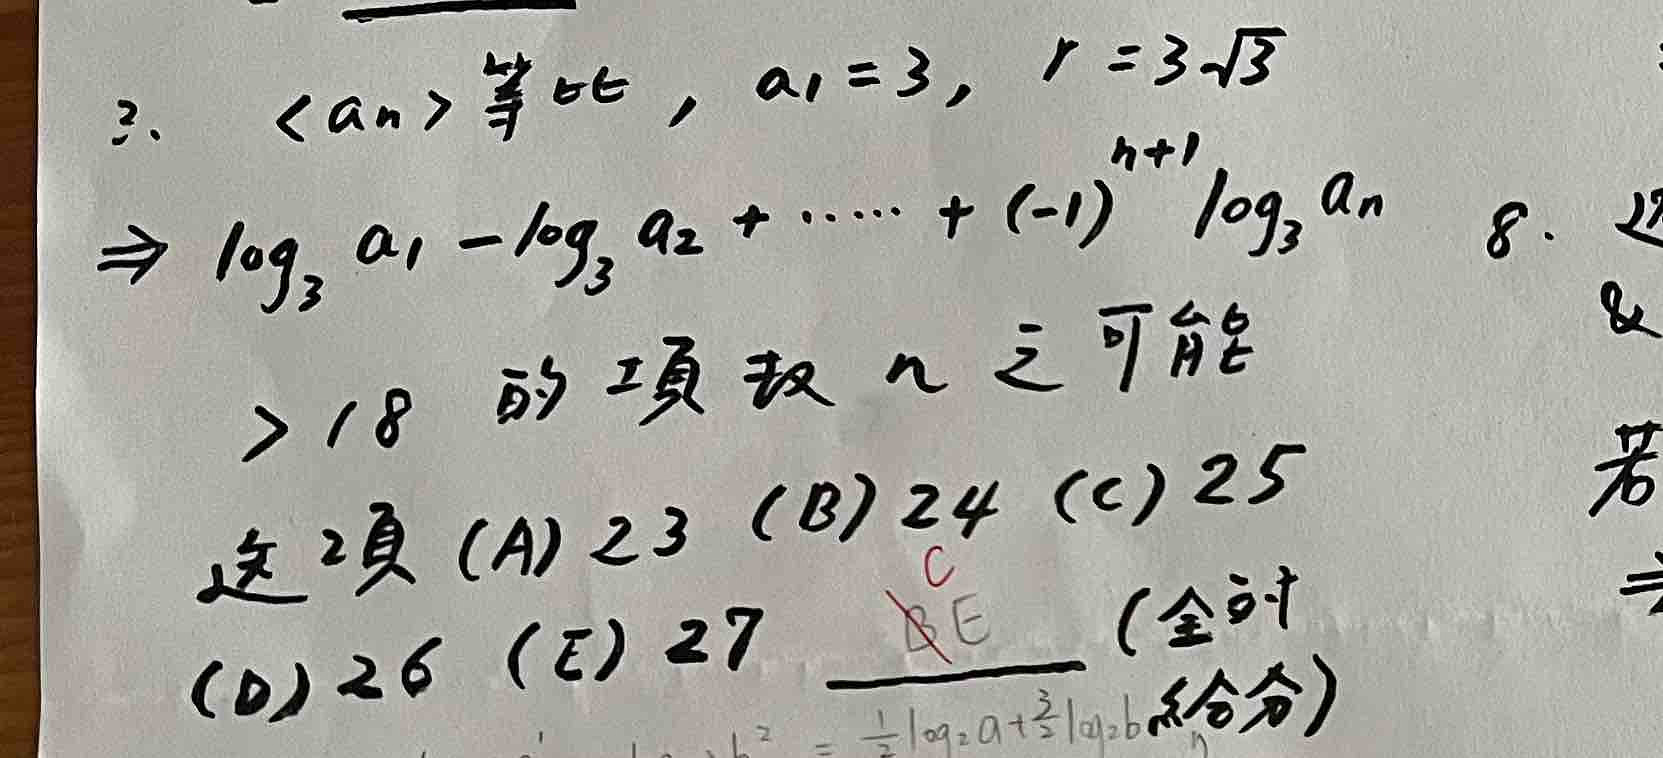 3. <an> 等比, a1 = 3, r = 3√3
⇒ log₃ a1 - log₃ a2 + ..... + (-1)ⁿ⁺¹ log₃ an
> 18 的項数 n 之可能
选項 (A) 23 (B) 24 (C) 25
(D) 26 (E) 27 C B E (全对
给分)
b² = ½ log₂ a + 3/2 log₂ b
8.
&
若
⇒